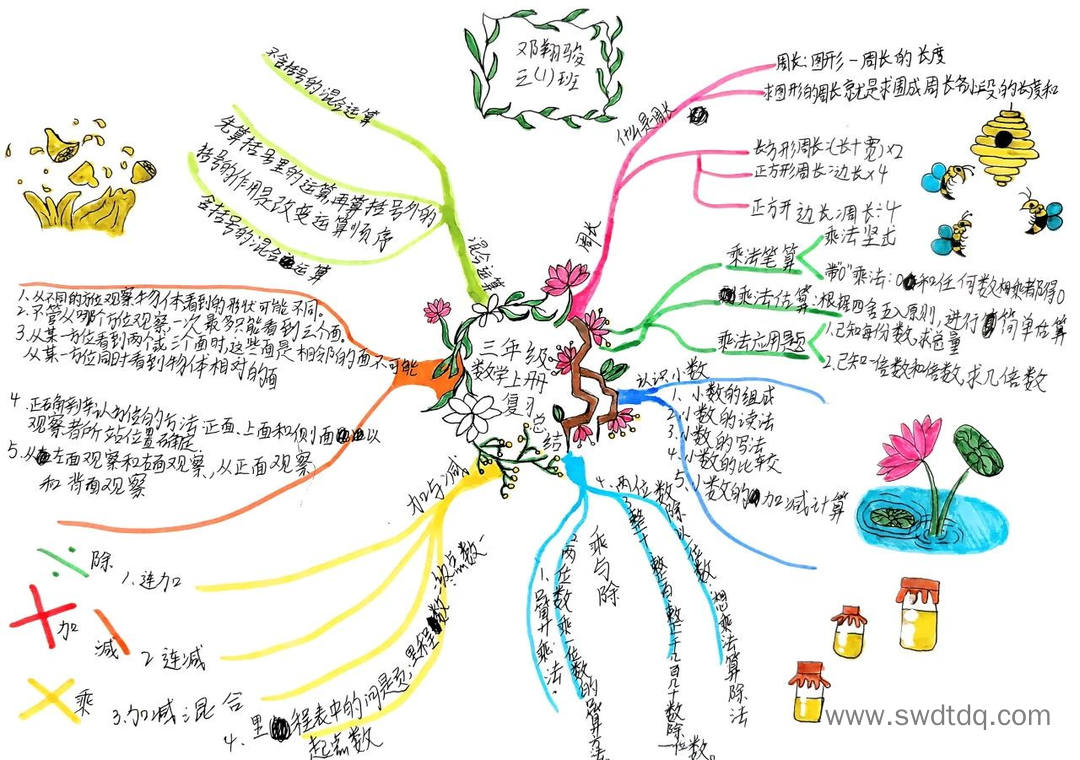 邓翔骏
三(1)班
三年级
数学上册
复习总结
混合运算
不含括号的混合运算
先算括号里的运算再算括号外的
括号的作用是改变运算顺序
含括号的混合运算
周长
什么是周长
周长:图形一周长的长度
求图形的周长就是求围成周长各小段的长度和
长方形周长:(长+宽)×2
正方形周长:边长×4
正方开边长:周长÷4
乘法笔算
乘法竖式
带"0"乘法:0和任何数相乘都得0
乘法估算:根据四舍五入原则,进行简单估算
乘法应用题
1.已知每份数,求总量
2.已知一倍数和倍数,求几倍数
认识小数
1、小数的组成
2、小数的读法
3、小数的写法
4、小数的比较
5、小数的加减计算
1、从不同的方位观察物体看到的形状可能不同。
2、不管从哪个方位观察一次最多只能看到三个面。
3、从某一方位看到两个或三个面时,这些面是相邻的面不可能
从某一方位同时看到物体相对的面
4.
观察者所站位置确定
5、从左面观察和右面观察,从正面观察
和背面观察
加与减
1、连加
2、连减
3.加减混合
4、里程表中的问题:里程数=
起点数
乘与除
1、口算开乘法:
2、两位数乘一位数的口算方法
4、两位数除以一位数:想乘法算除法
除
加
减
乘
www.swdtdq.com